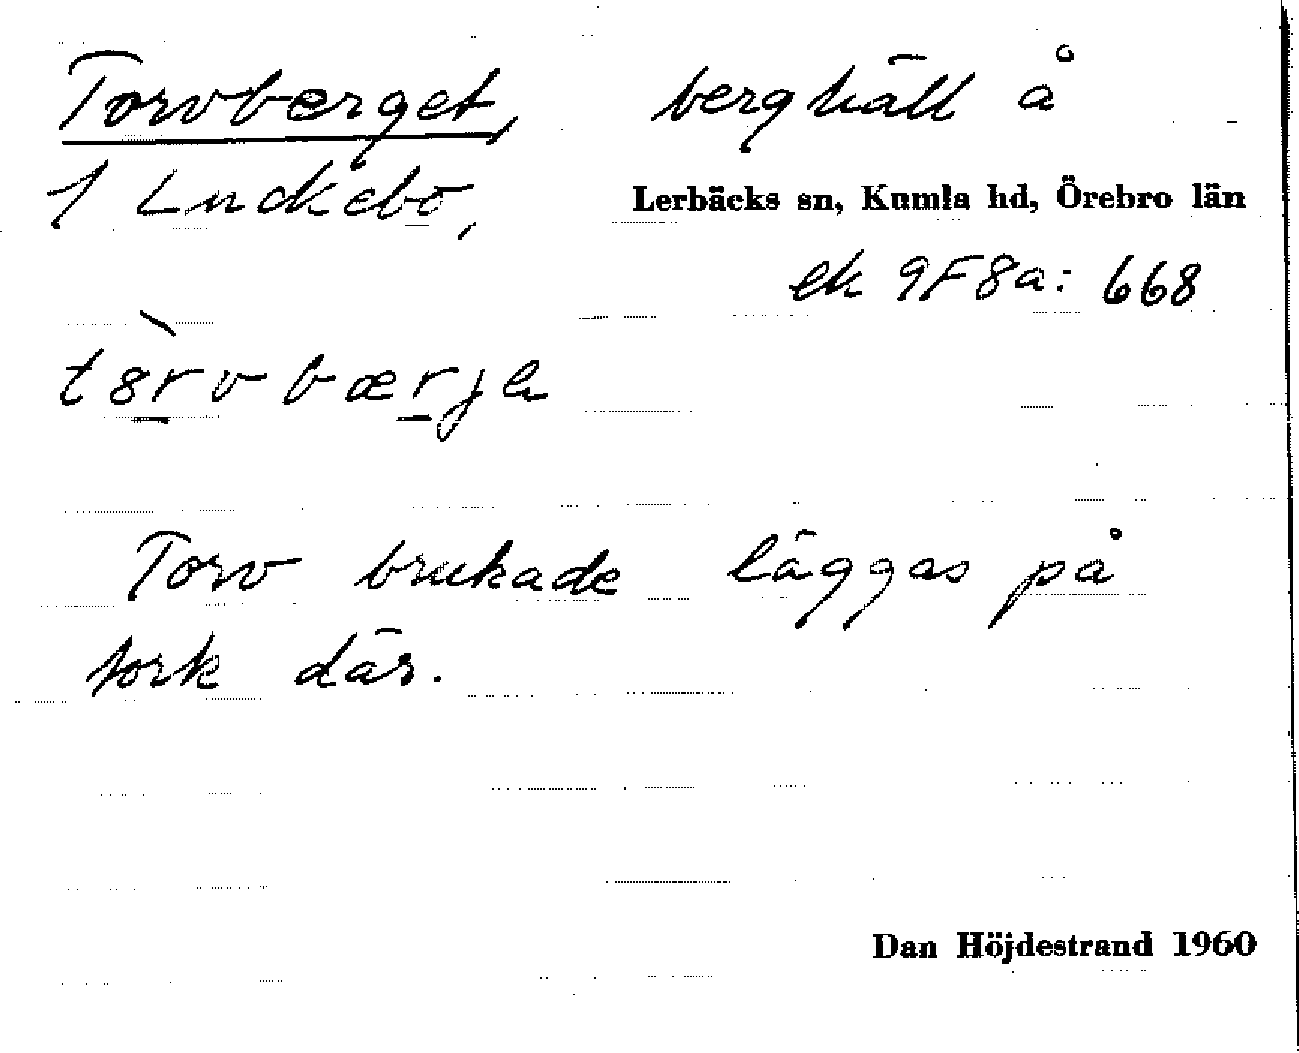 Torvberget, berghäll å
1 Luckebo, Lerbäcks sn, Kumla hd, Örebro län
ek 9F8a: 668
Torv brukade läggas på
tork där.
Dan Höjdestrand 1960